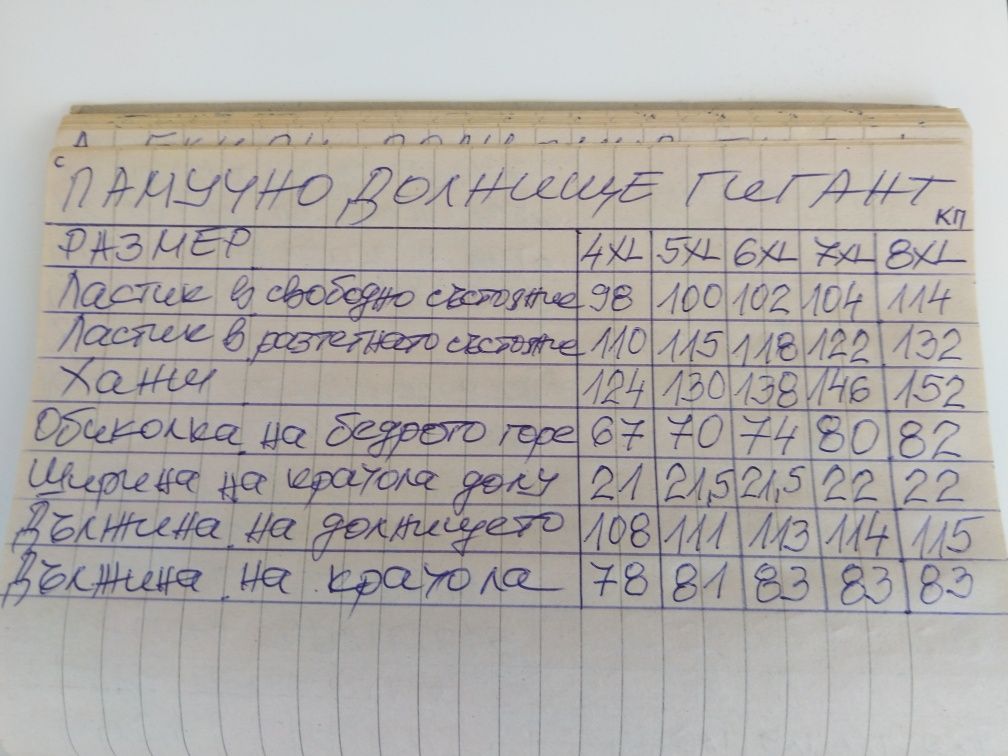 с
ПАМУЧНО ДОЛНИЩЕ ГИГАНТ
КП
РАЗМЕР 4XL 5XL 6XL 7XL 8XL
Ластик в свободно състояние 98 100 102 104 114
Ластик в разтегнато състояние 110 115 118 122 132
Ханш 124 130 138 146 152
Обиколка на бедрото горе 67 70 74 80 82
Ширина на крачола долу 21 21,5 21,5 22 22
Дължина на долнището 108 111 113 114 115
Дължина на крачола 78 81 83 83 83